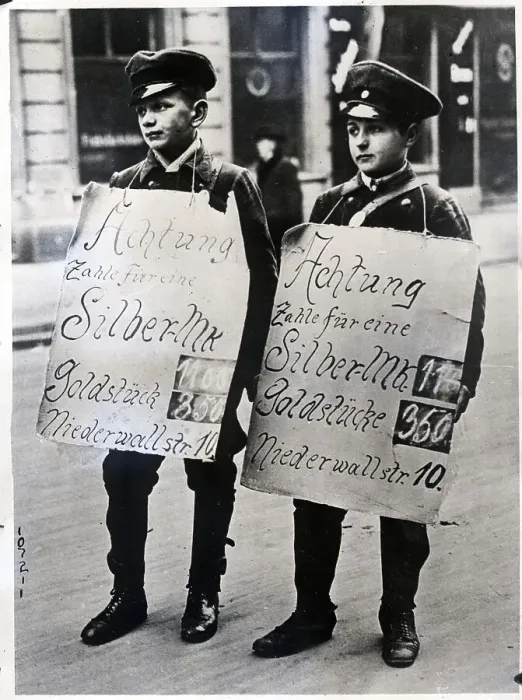 Achtung
Zahle für eine
Silber-Mk
1100
Goldstück
350
Niederwallstr. 10
Achtung
Zahle für eine
Silber-Mk.
Goldstücke
350
Niederwallstr. 10.
1072-1